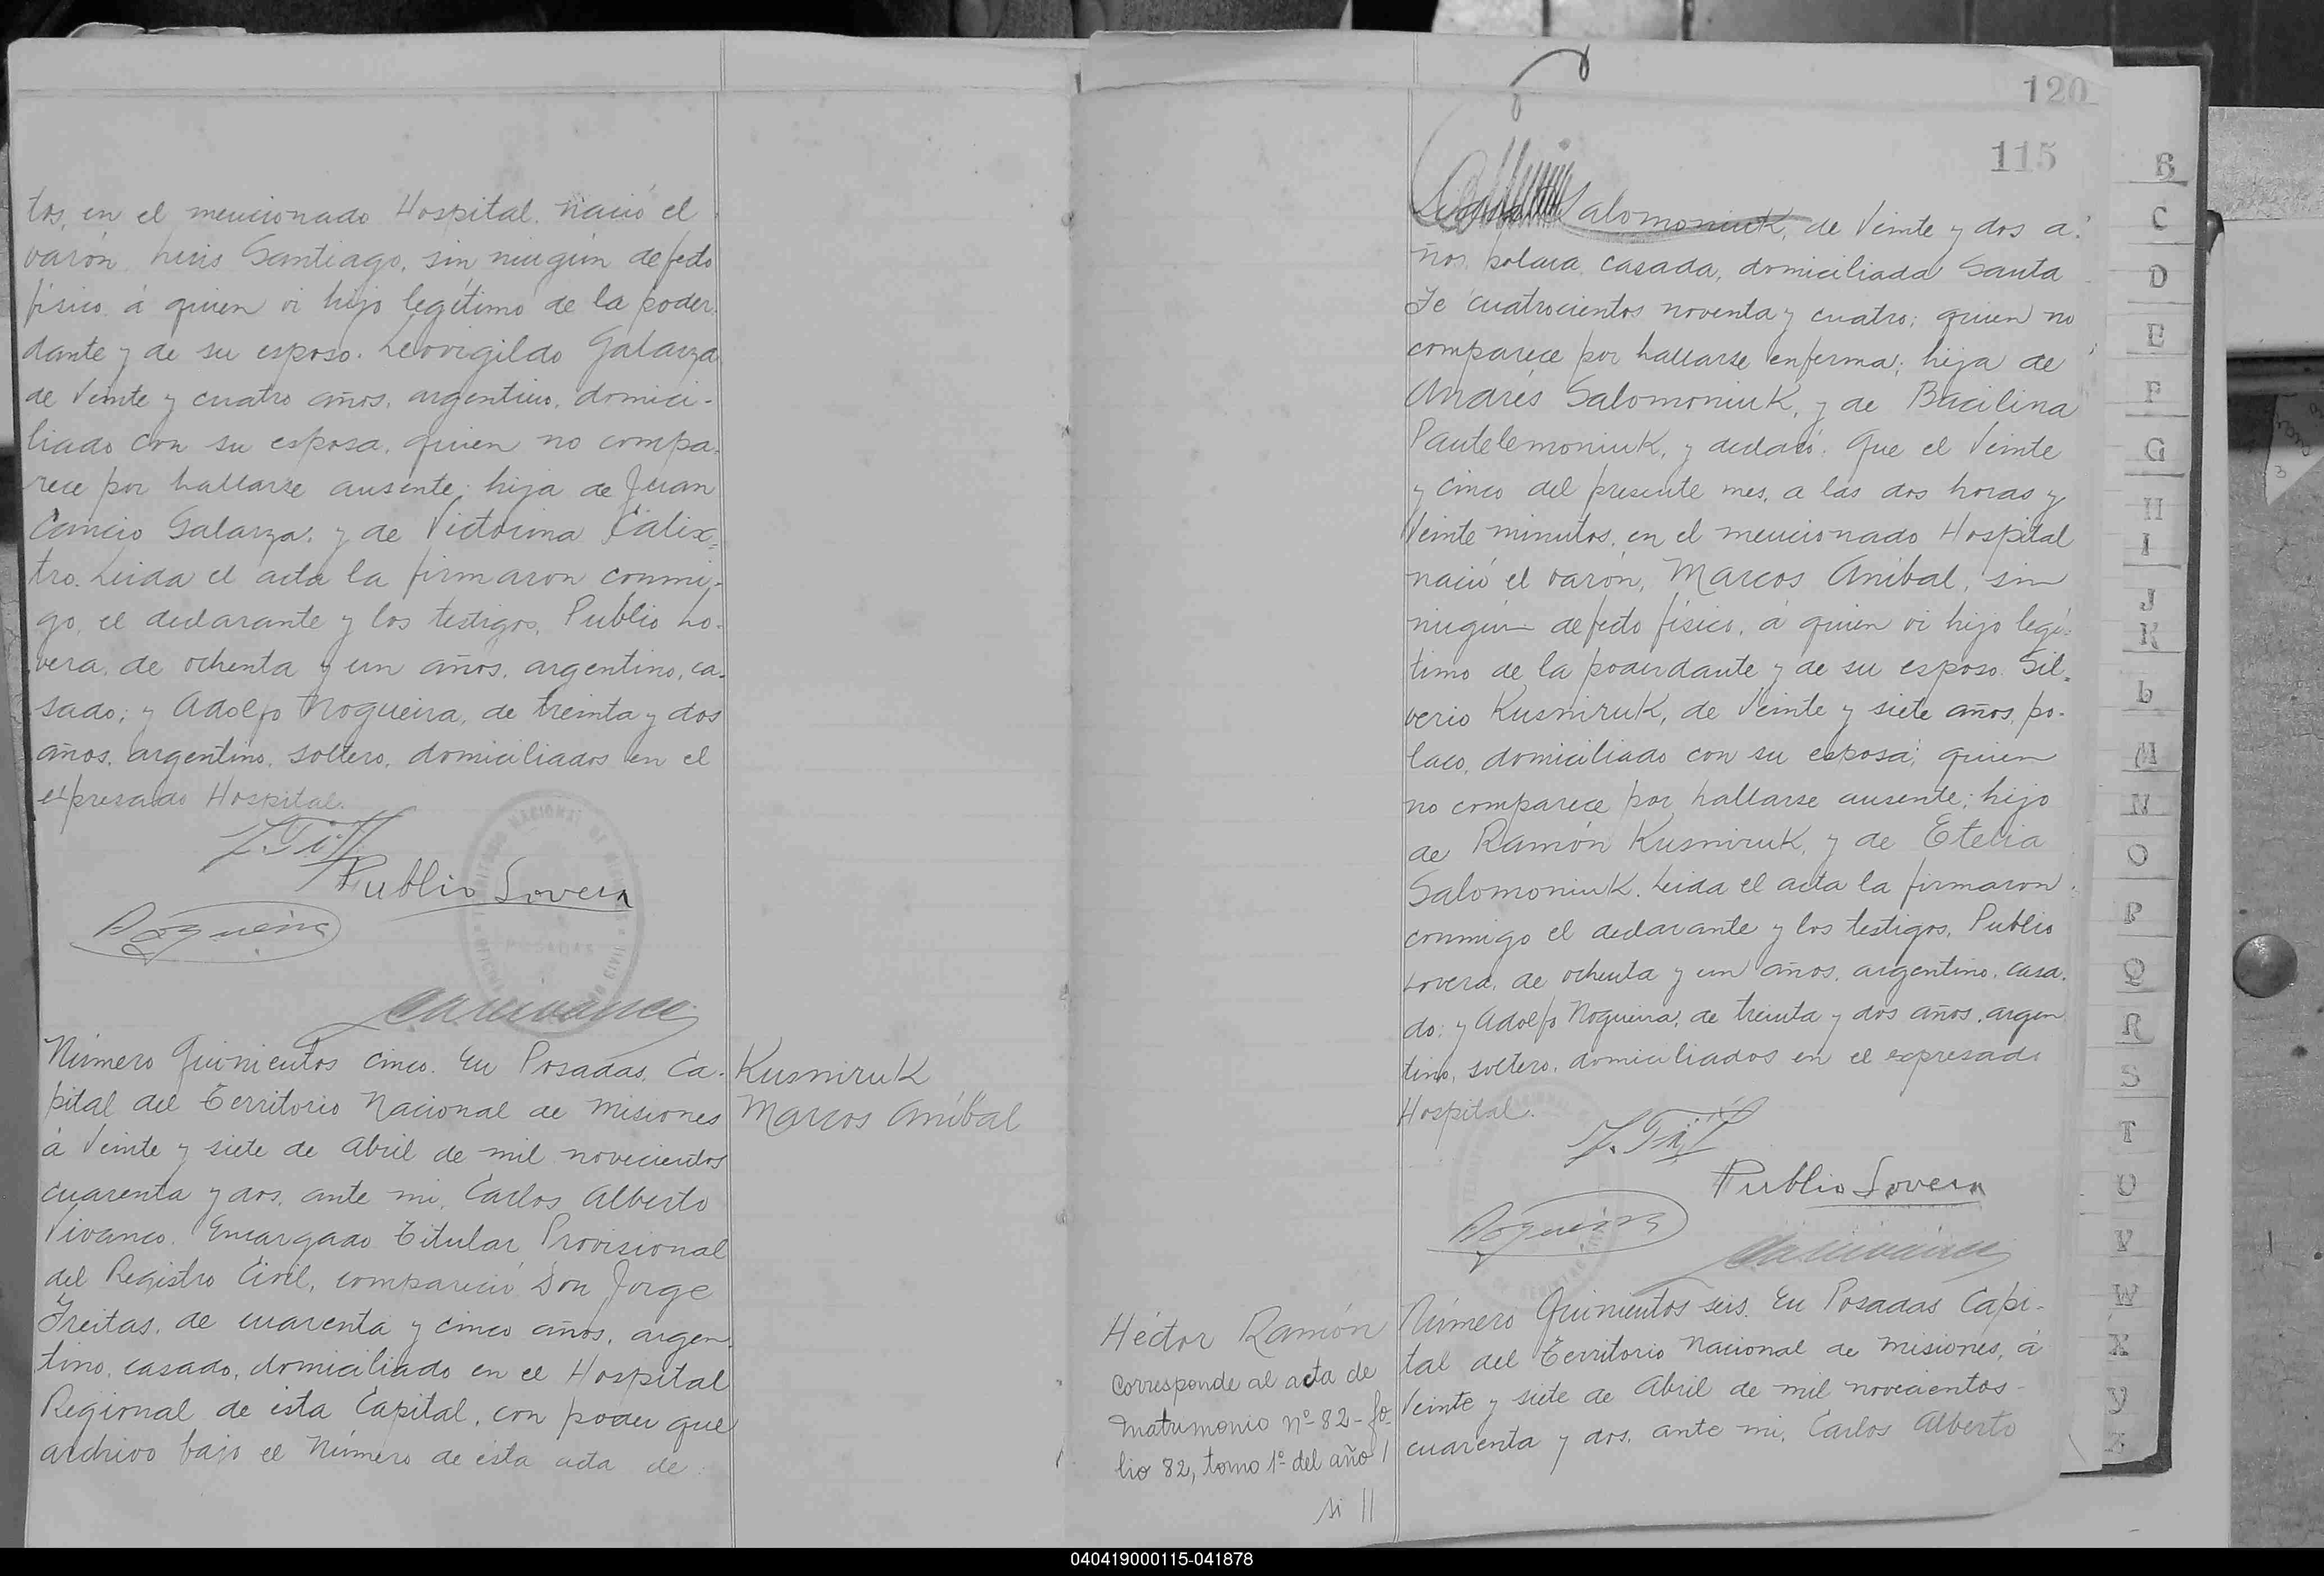 tos, en el mencionado Hospital. nació el
varón Luis Santiago, sin ningún defecto
físico á quien vi hijo legítimo de la poder
dante y de su esposo. Leovigildo Galarza
de Veinte y cuatro años, argentino, domici-
liado con su esposa, quien no compa-
rece por hallarse ausente; hija de Juan
Cancio Galarza, y de Victorina Calix=
tro. Leida el acta la firmaron conmi-
go, el declarante y los testigos, Publio Lo-
vera, de ochenta y un años, argentino, ca-
sado; y Adolfo Nogueira, de treinta y dos
años, argentino, soltero, domiciliados en el
expresado Hospital.
Publio Lovera
Nogueira
POSADAS
Número Quinientos cinco. En Posadas, Ca-
pital del Territorio Nacional de Misiones
á Veinte y siete de Abril de mil novecientos
cuarenta y dos, ante mi, Carlos Alberto
Vivanco. Encargado Titular Provisional
del Registro Civil, compareció Don Jorge
Freitas, de cuarenta y cinco años, argen
tino, casado, domiciliado en el Hospital
Regional de ésta Capital, con poder que
archivo bajo el Número de ésta acta de
Kusniruk
Marcos Aníbal
120
115
Salomoniuk, de Veinte y dos a-
ños, polaca, casada, domiciliada Santa
Fe cuatrocientos noventa y cuatro; quien no
comparece por hallarse enferma; hija de
Andrés Salomoniuk, y de Bacilina
Pantelemoniuk, y declaró: Que el Veinte
y cinco del presente mes, a las dos horas y
Veinte minutos, en el mencionado Hospital
nació el varón, Marcos Aníbal, sin
ningún defecto físico, á quien vi hijo legí-
timo de la poderdante y de su esposo. Sil-
verio Kusniruk, de Veinte y siete años, po-
laco, domiciliado con su esposa; quien
no comparece por hallarse ausente; hijo
de Ramón Kusniruk, y de Etelia
Salomoniuk. Leida el acta la firmaron
conmigo el declarante y los testigos, Publio
Lovera, de ochenta y un años, argentino, casa-
do; y Adolfo Nogueira, de treinta y dos años, argen
tino, soltero, domiciliados en el expresado
Hospital.
Publio Lovera
Nogueira
Héctor Ramón
Corresponde al acta de
Matrimonio nº 82 - fo-
lio 82, tomo 1º del año /
si //
Número Quinientos seis. En Posadas Capi-
tal del Territorio Nacional de Misiones, á
Veinte y siete de Abril de mil novecientos
cuarenta y dos, ante mi, Carlos Alberto
B
C
D
E
F
G
H
I
J
K
L
M
N
O
P
Q
R
S
T
U
V
W
X
Y
Z
040419000115-041878